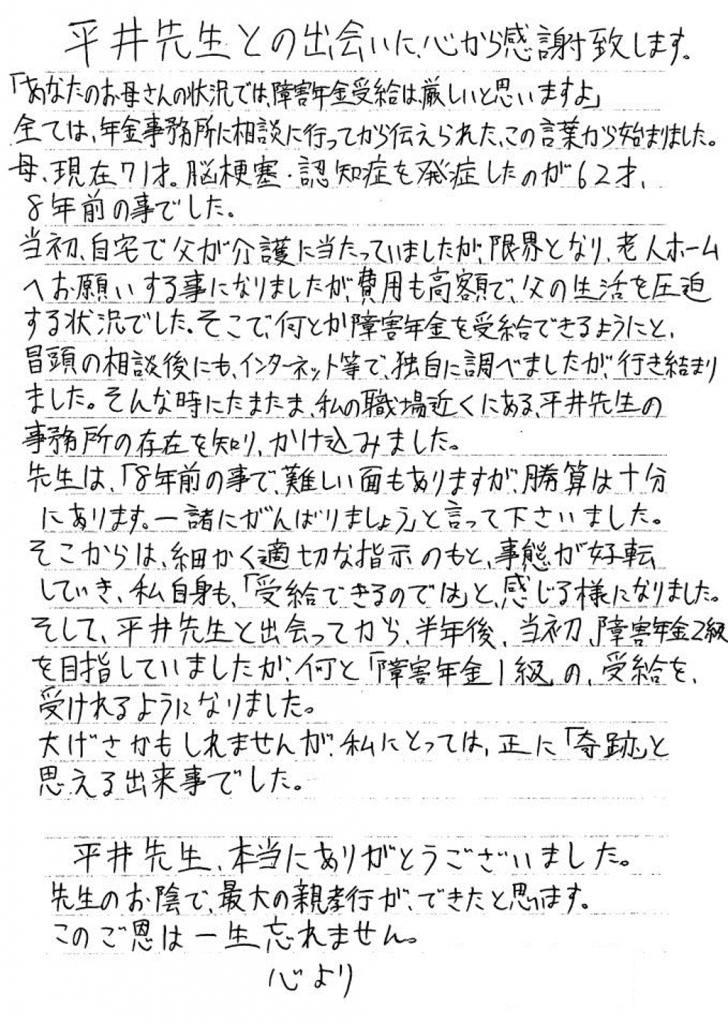 平井先生との出会いに、心から感謝致します。
「あなたのお母さんの状況では、障害年金受給は、厳しいと思いますよ」
全ては、年金事務所に相談に行ってから伝えられた、この言葉から始まりました。
母、現在71才。脳梗塞・認知症を発症したのが62才、
8年前の事でした。
当初、自宅で父が介護に当たっていましたが、限界となり、老人ホーム
へお願いする事になりましたが、費用も高額で、父の生活を圧迫
する状況でした。そこで、何とか障害年金を受給できるようにと、
冒頭の相談後にも、インターネット等で、独自に調べましたが、行き結まり
ました。そんな時にたまたま、私の職場近くにある、平井先生の
事務所の存在を知り、かけ込みました。
先生は、「8年前の事で、難しい面もありますが、勝算は十分
にあります。一諸にがんばりましょう」と言って下さいました。
そこからは、細かく適切な指示のもと、事態が好転
していき、私自身も、「受給できるのでは」と、感じる様になりました。
そして、平井先生と出会ってから、半年後、当初、「障害年金2級」
を目指していましたが、何と「障害年金1級」の、受給を、
受けれるようになりました。
大げさかもしれませんが、私にとっては、正に「奇跡」と
思える出来事でした。
平井先生、本当にありがとうございました。
先生のお陰で、最大の親孝行が、できたと思います。
このご恩は一生忘れません。
心より